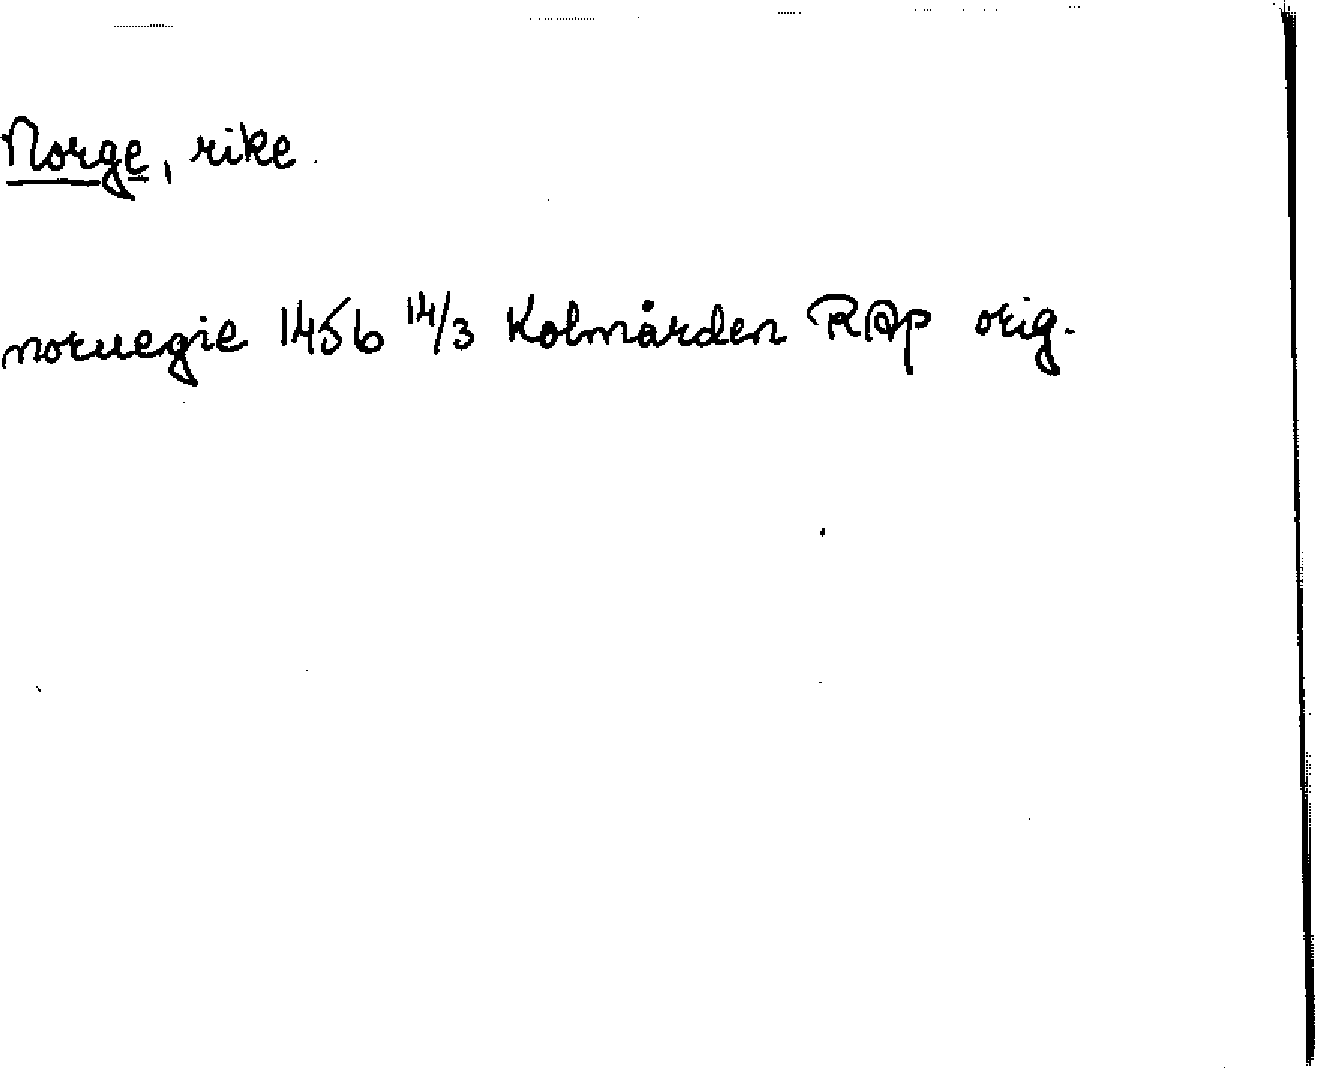 Norge, rike.
noruegie 1456 14/3 Kolmården RAp orig.